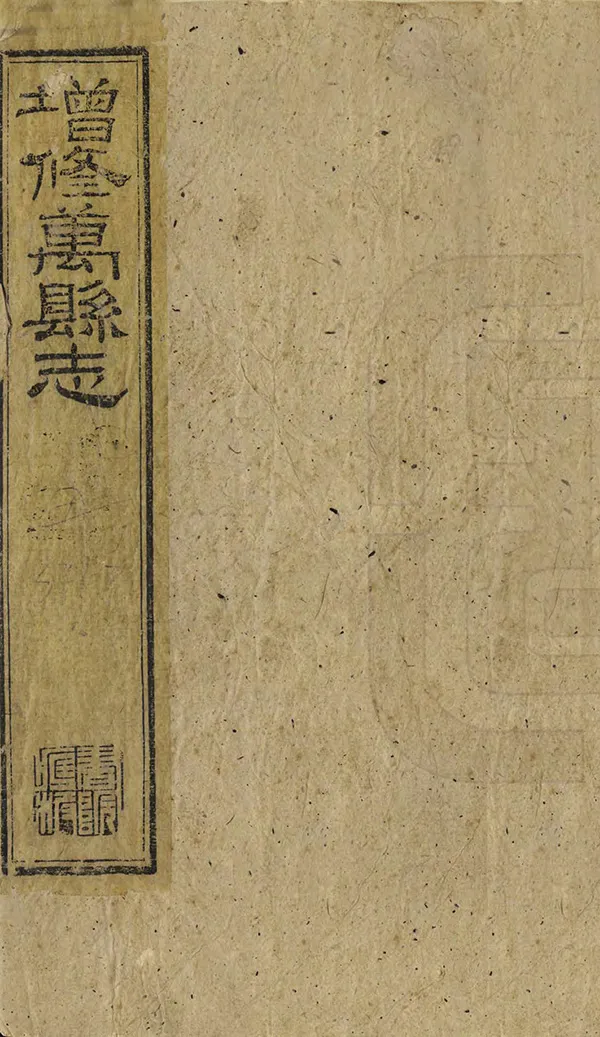 增修萬縣志